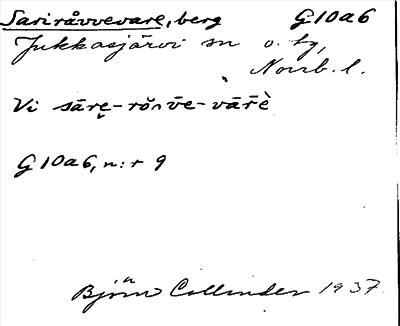 Sariråvvevare, berg G10a6
Jukkasjärvi sn o. tg,
Norrb. l.
Vi sāre̮-rŏnv̄e-vār̄è
G10a6, n:r 9
Björn Collinder 1937